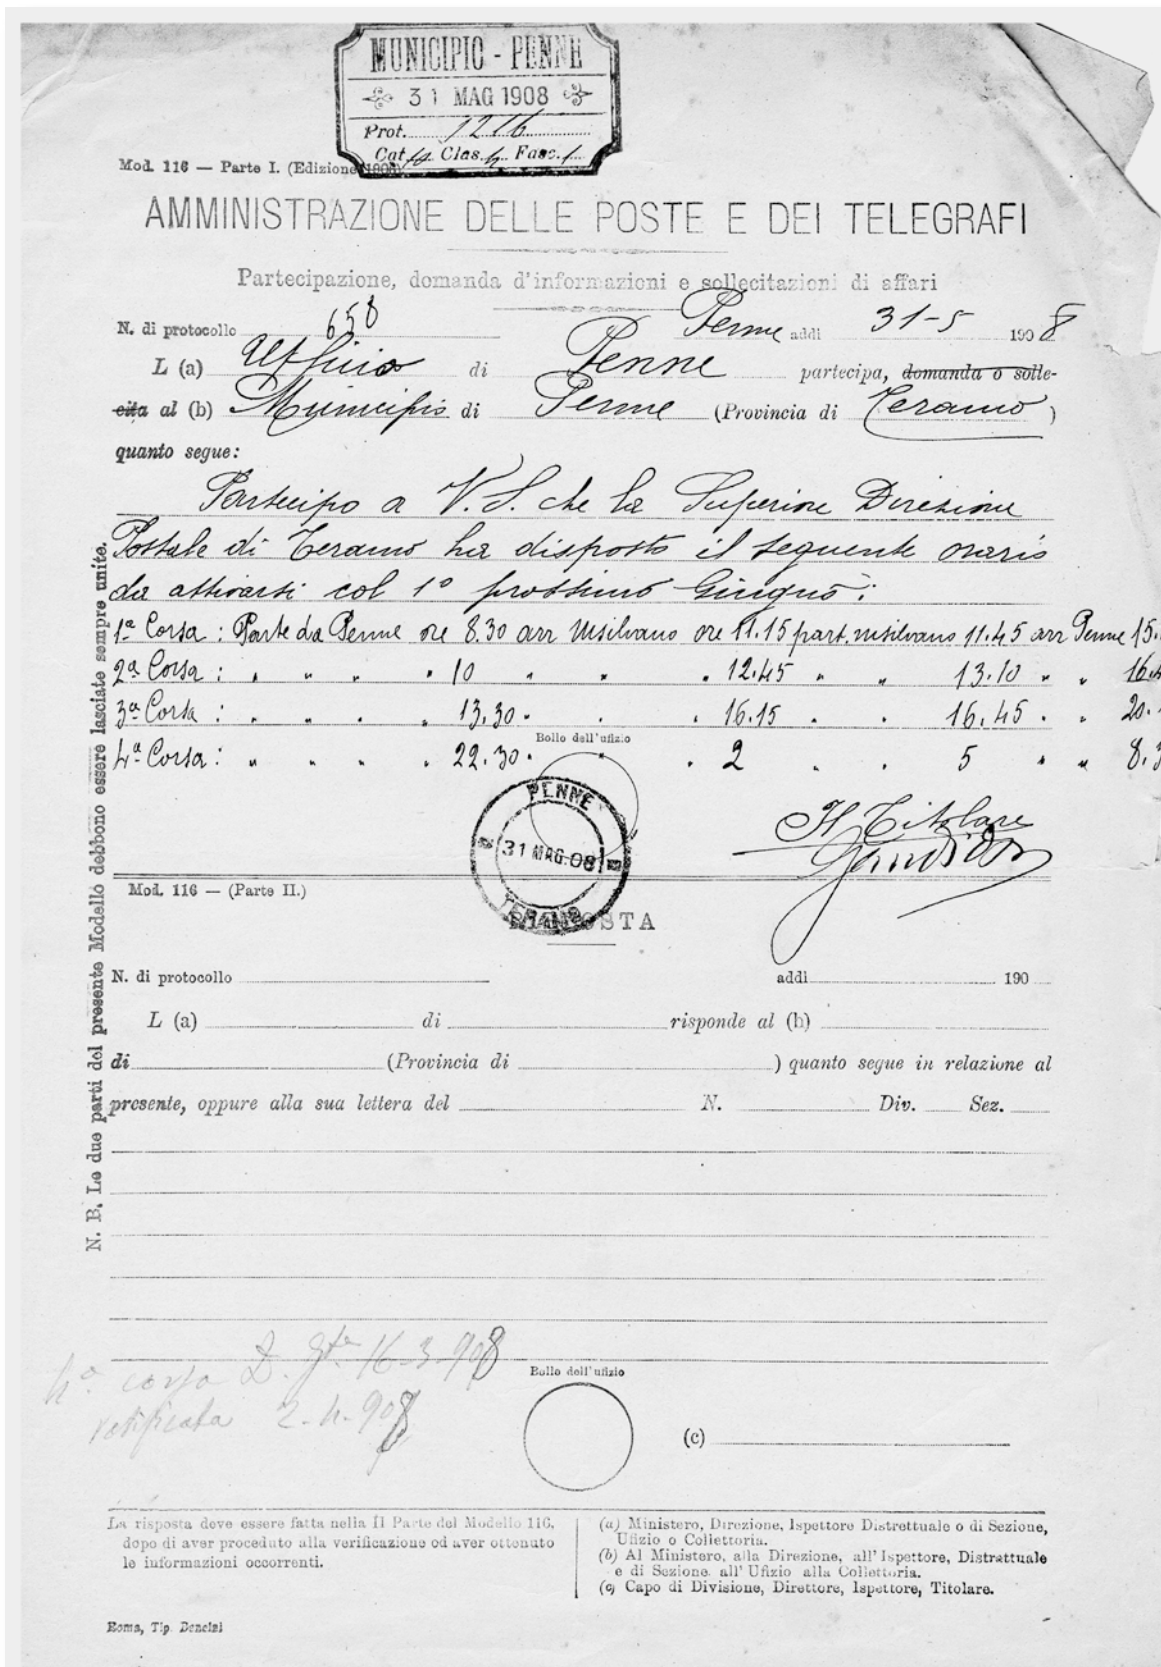 MUNICIPIO - PENNE
31 MAG 1908
Prot. 1216
Cat. 10 Clas. 4 Fasc. 1
Mod. 116 — Parte I. (Edizione
AMMINISTRAZIONE DELLE POSTE E DEI TELEGRAFI
Partecipazione, domanda d'informazioni e sollecitazioni di affari
N. di protocollo 658 Penne addi 31-5 1908
L (a) Ufficio di Penne partecipa, domanda o solle-
cita al (b) Municipio di Penne (Provincia di Teramo)
quanto segue:
Partecipo a V. S. che la Superiore Direzione
Postale di Teramo ha disposto il seguente orario
da attivarsi col 1º prossimo Giugno:
1ª Corsa : Parte da Penne ore 8.30 arr Msilvano ore 11.15 part. msilvano 11.45 arr Penne 15.
2ª Corsa : " " " " 10 " " " 12.45 " " 13.10 " " 16.4
3ª Corsa : " " " " 13.30 " " " 16.15 " " 16.45 " " 20.
4ª Corsa : " " " " 22.30 " " " 2 " " 5 " " 8.3
Bollo dell'ufizio
PENNE
31 MAG. 08
TERAMO
Il Titolare
Mod. 116 — (Parte II.)
RISPOSTA
N. di protocollo addi 190
L (a) di risponde al (b)
di (Provincia di ) quanto segue in relazione al
presente, oppure alla sua lettera del N. Div. Sez.
N. B. Le due parti del presente Modello debbono essere lasciate sempre unite.
4ª corsa D. 16-3-908
ratificata 2-4-908
Bollo dell'ufizio
(c)
La risposta deve essere fatta nella II Parte del Modello 116,
dopo di aver proceduto alla verificazione od aver ottenuto
le informazioni occorrenti.
(a) Ministero, Direzione, Ispettore Distrettuale o di Sezione,
Ufizio o Collettoria.
(b) Al Ministero, alla Direzione, all'Ispettore, Distrattuale
e di Sezione all'Ufizio alla Collettoria.
(c) Capo di Divisione, Direttore, Ispettore, Titolare.
Roma, Tip. Bencini